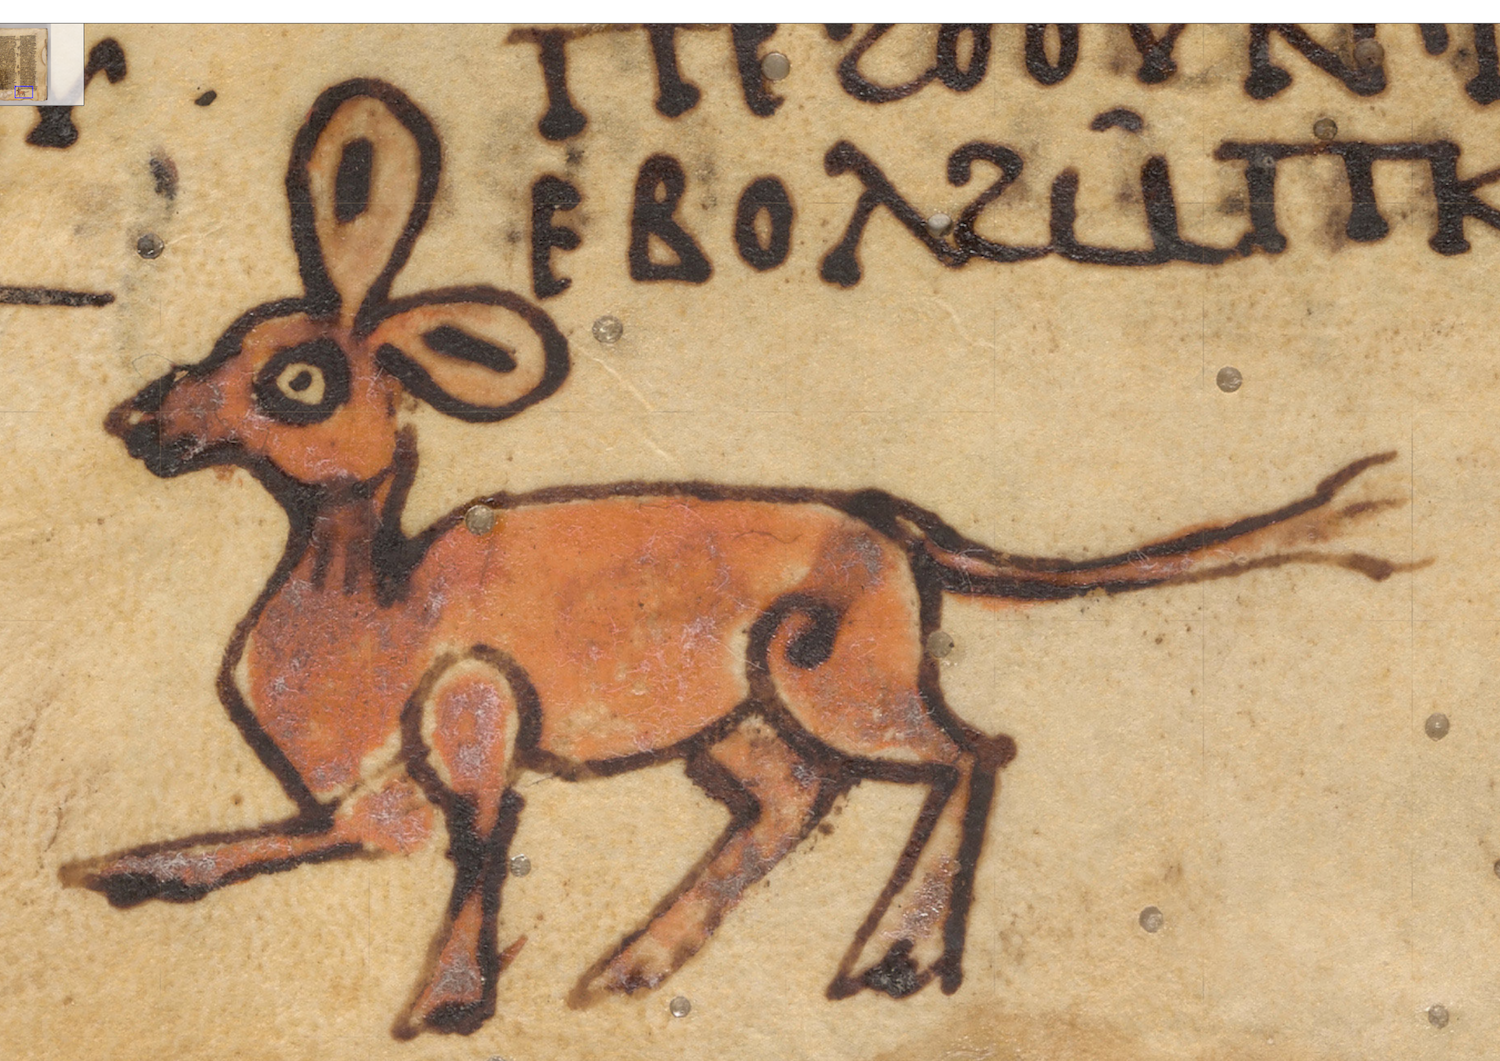 ⲡⲉϩⲟⲟⲩⲛ
ⲉⲃⲟⲗϩⲙ̄ⲡⲕ